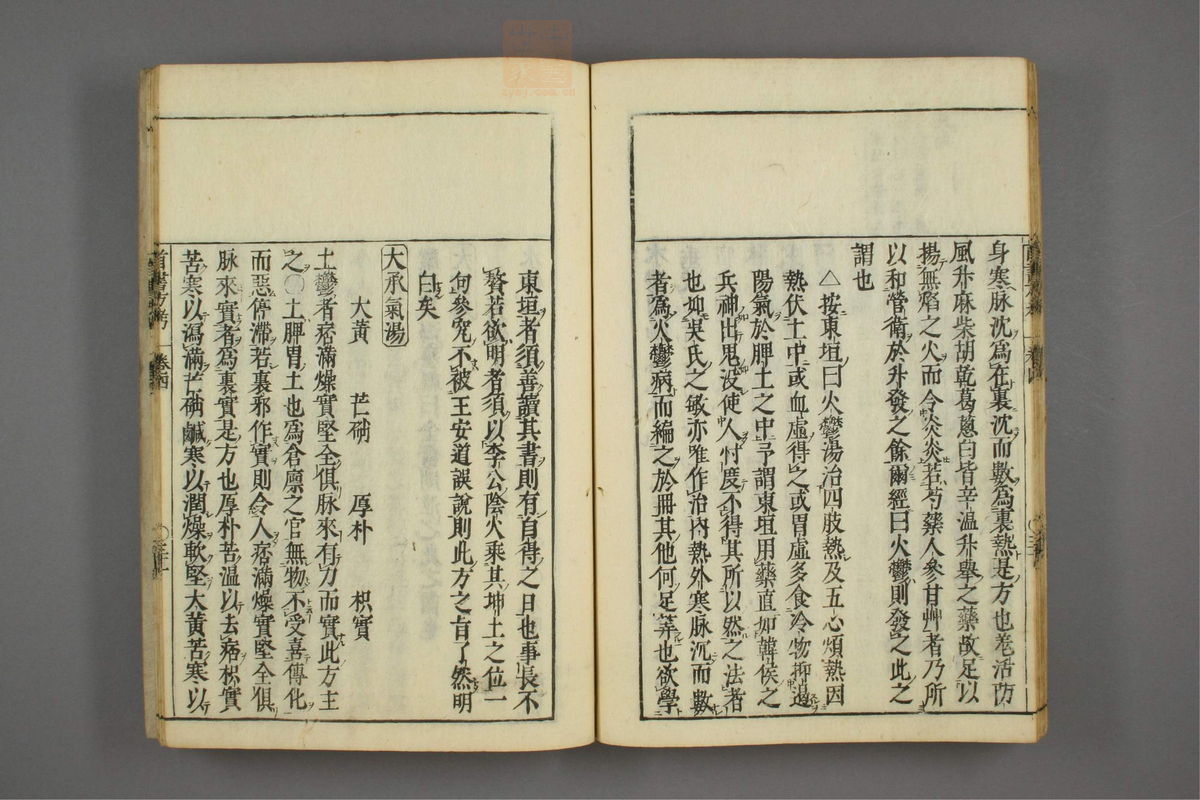 身寒脉沈為在裏沈而數為裏熱是方也羌活防
風升麻柴胡乾葛葱白皆辛温升舉之藥故足以
揚無焰之火而令炎炎若芍藥人參甘艸者乃所
以和營衛於升發之餘爾經曰火鬱則發之此之
謂也
△按東垣曰火鬱湯治四肢熱及五心煩熱因
熱伏土中或血虛得之或胃虛多食冷物抑遏
陽氣於脾土之中予謂東垣用藥直如韓侯之
兵神出鬼没使人忖度不得其所以然之法者
也抑吴氏之敏亦唯作治內熱外寒脉沉而數
者為火鬱病而編之於冊其他何足筭也欲學
東垣者須善讀其書則有自得之日也事長不
贅若欲明者須以李公陰火乘其坤土之位一
句參究不被王安道誤說則此方之旨了然明
白矣
大承氣湯
大黄 芒硝 厚朴 枳實
土鬱者痞滿燥實堅全俱脉來有力而實此方主
之○土脾胃土也為倉廪之官無物不受喜傳化
而惡停滯若裏邪作實則令人痞滿燥實堅全俱
脉來實者為裏實是方也厚朴苦温以去痞枳實
苦寒以瀉滿芒硝鹹寒以潤燥軟堅大黄苦寒以
卷四